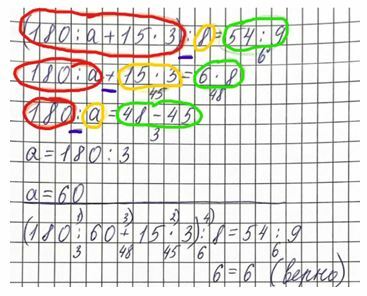 (180 : a + 15 · 3) : 8 = 54 : 9
6
180 : a + 15 · 3 = 6 · 8
45 48
180 : a = 48 - 45
3
a = 180 : 3
a = 60
1) 3) 2) 4)
(180 : 60 + 15 · 3) : 8 = 54 : 9
3 48 45 6 6
6 = 6 (верно)